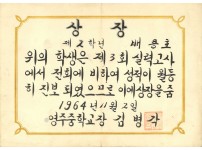 상장
제2학년 배용호
위의 학생은 제3회 실력고사
에서 전회에 비하여 성적이 월등
히 진보 되였으므로 이에 상장을 줌
1964년 11월 2일
영주중학교장 김병각